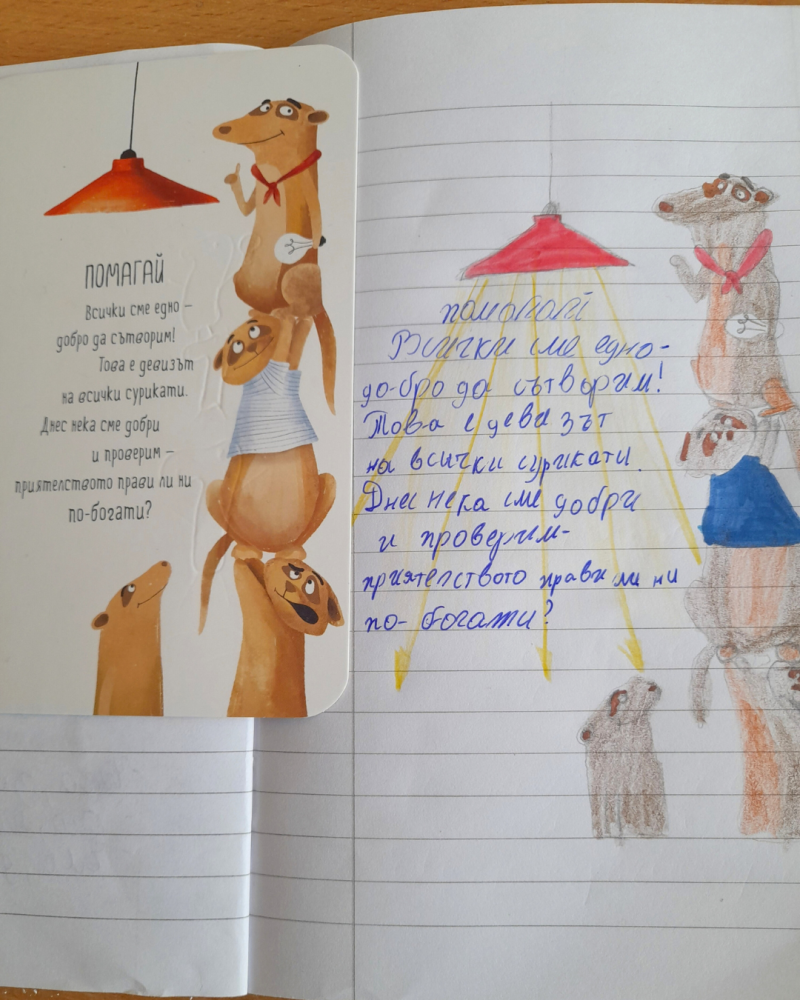 ПОМАГАЙ
Всички сме едно –
добро да сътворим!
Това е девизът
на всички сурикати.
Днес нека сме добри
и проверим –
приятелството прави ли ни
по-богати?
помагай
Всички сме едно-
до-бро да сътворим!
Това е девизът
на всички сурикати.
Днес нека сме добри
и проверим-
приятелството прави ли ни
по-богати?